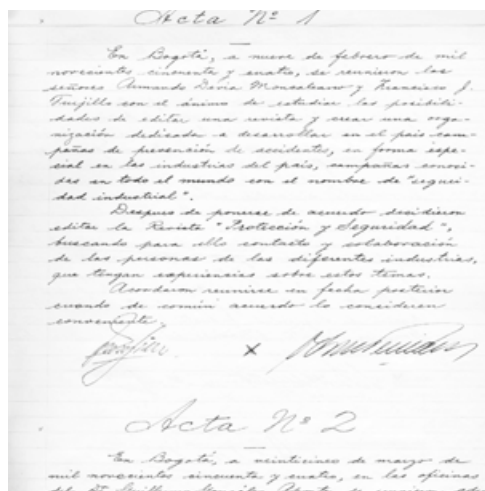 Acta Nº 1
En Bogotá, a nueve de febrero de mil
novecientos cincuenta y cuatro, se reunieron los
señores Armando Devia Moncaleano y Francisco J.
Trujillo con el ánimo de estudiar las posibili-
dades de editar una revista y crear una orga-
nización dedicada a desarrollar en el país cam-
pañas de prevención de accidentes, en forma espe-
cial en las industrias del país, campañas conoci-
das en todo el mundo con el nombre de "seguri-
dad industrial".
Después de ponerse de acuerdo decidieron
editar la Revista "Protección y Seguridad",
buscando para ello contacto y colaboración
de las personas de las diferentes industrias,
que tengan experiencias sobre estos temas.
Acordaron reunirse en fecha posterior
cuando de común acuerdo lo consideren
conveniente.
Acta Nº 2
En Bogotá, a veinticinco de marzo de
mil novecientos cincuenta y cuatro, en las oficinas